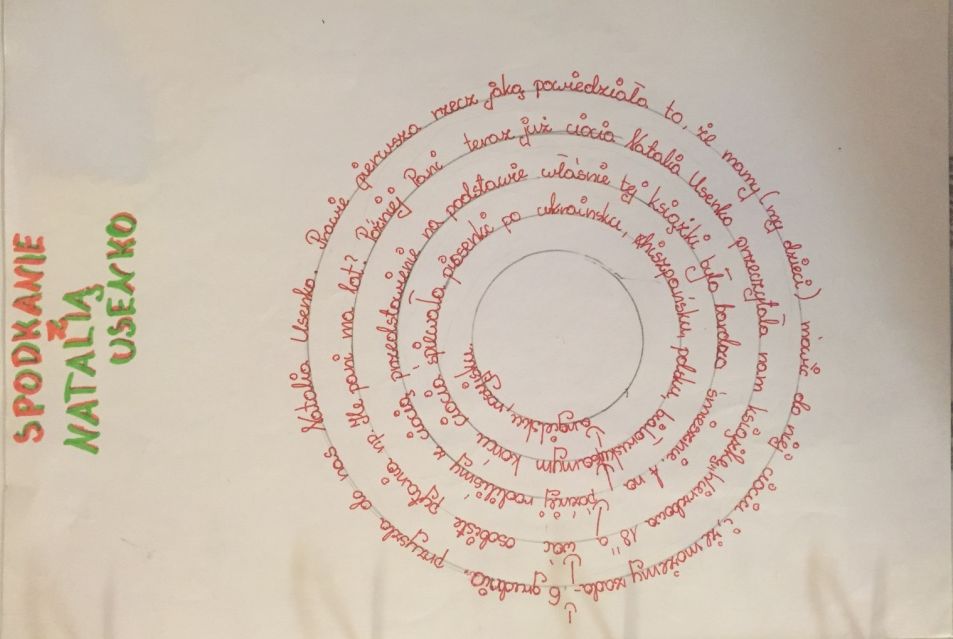 SPODKANIE
Z
NATALIĄ
USENKO
6 grudnia, przyszła do nas Natalia Usenko. Prawie pierwsza rzecz jaką powiedziała to, że mamy (my dzieci) mówić do niej ciociu i, że możemy zada-
wać osobiste pytania np. Ile pani ma lat? Później Pani teraz już ciocia Natalia Usenko przeczytała nam książkę „Wierzbowa 18" a
później robiliśmy z ciocią przedstawienie na podstawie właśnie tej książki było bardzo śmieszne. A na
samym końcu ciocia śpiewała piosenki po ukraińsku, hiszpańsku, polsku, białorusku,
angielsku, rosyjsku.